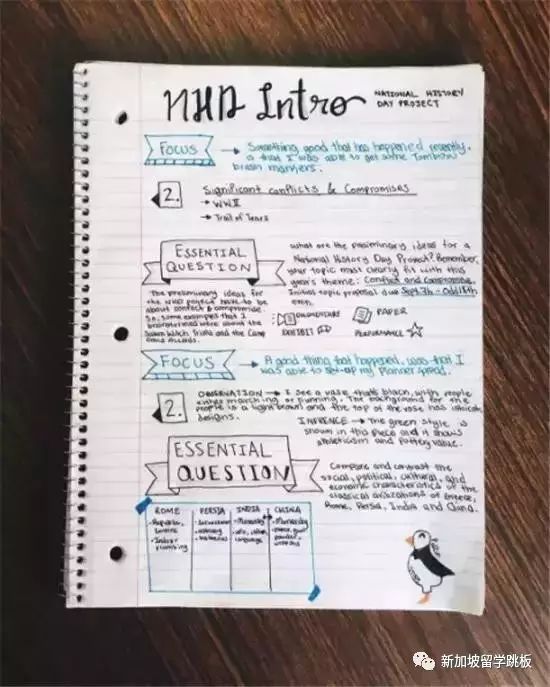 NHD Intro
NATIONAL HISTORY
DAY PROJECT
FOCUS
→ Something good that has happened recently,
is that I was able to get some Tombow
brush markers.
2.
Significant conflicts & Compromises
→ WWII
→ Trail of Tears
ESSENTIAL
QUESTION
What are the preliminary ideas for a
National History Day Project? Remember,
your topic must clearly fit with this
year's theme: Conflict and Compromise.
Initial topic proposal due Sept.
The preliminary ideas for
the NHD project have to be
about conflict & compromise.
So, some examples that I
brainstormed were about the
Salem Witch Trials and the Camp
David Accords.
DOCUMENTARY
PAPER
EXHIBIT
PERFORMANCE
FOCUS
→ A good thing that happened, was that I
was able to set-up my planner spread.
2.
OBSERVATION → I see a vase that's black, with people
either marching or running. The background for the
people is a light brown and the top of the vase has
designs.
INFERENCE → The green style is
shown in this piece and it shows
athleticism and pottery value.
ESSENTIAL
QUESTION
Compare and contrast the
social, political, cultural, and
economic characteristics of the
classical civilizations of Greece,
Rome, Persia, India and China.
ROME
PERSIA
INDIA
CHINA
- Republic,
- Indoor
plumbing
- Monarchy
language
- Monarchy
powder
新加坡留学跳板